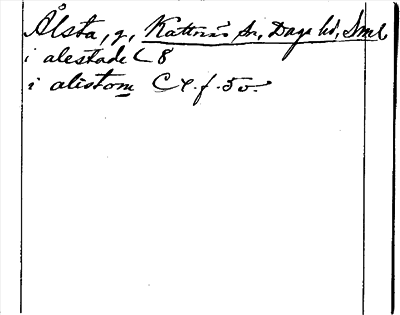 Ålsta, g, Kattnäs sn, Daga hd, Sml.
i alestade C 8
i alistom C 4. f. 50.